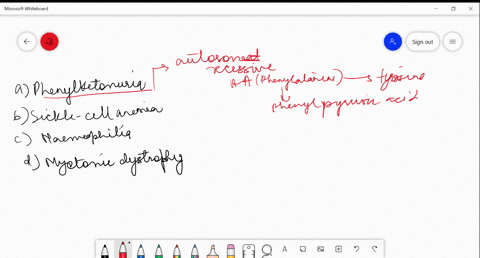 Microsoft Whiteboard
Sign out
autosomal
recessive
a) Phenylketonuria
AA (Phenylalanine) → tyrosine
↓
phenyl pyruvic acid
b) Sickle-cell anemia
c) Haemophilia
d) Myotonic dystrophy
A